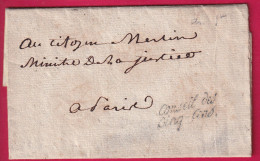 Au citoyen Merlin
Ministre de la justice
a Paris
Conseil des
Cinq Cens.